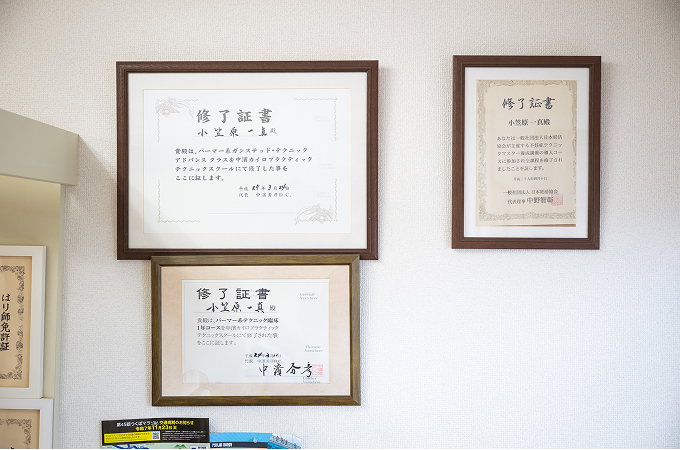 修了証書
小笠原 一真 殿
貴殿は、パーマー系ガンステッド・テクニック
アドバンス クラスを中濱カイロプラクティック
テクニックスクールにて修了した事を
ここに証します。
平成 29年 3月
代表
修了証書
小笠原 一真 殿
貴殿は、パーマー系テクニック臨床
1年コースを中濱カイロプラクティック
テクニックスクールにて修了された事
をここに証します。
平成
代表
修了証書
小笠原 一真殿
あなたは一般社団法人日本妊活
協会が主催する不妊症テクニッ
クマスター養成講座の導入コー
スに参加され全課程を修了され
ましたことを証します。
一般社団法人 日本妊活協会
代表理事 中野智彰
はり師免許証
第45回つくばマラソン 交通規制のお知らせ
令和7年11月23日